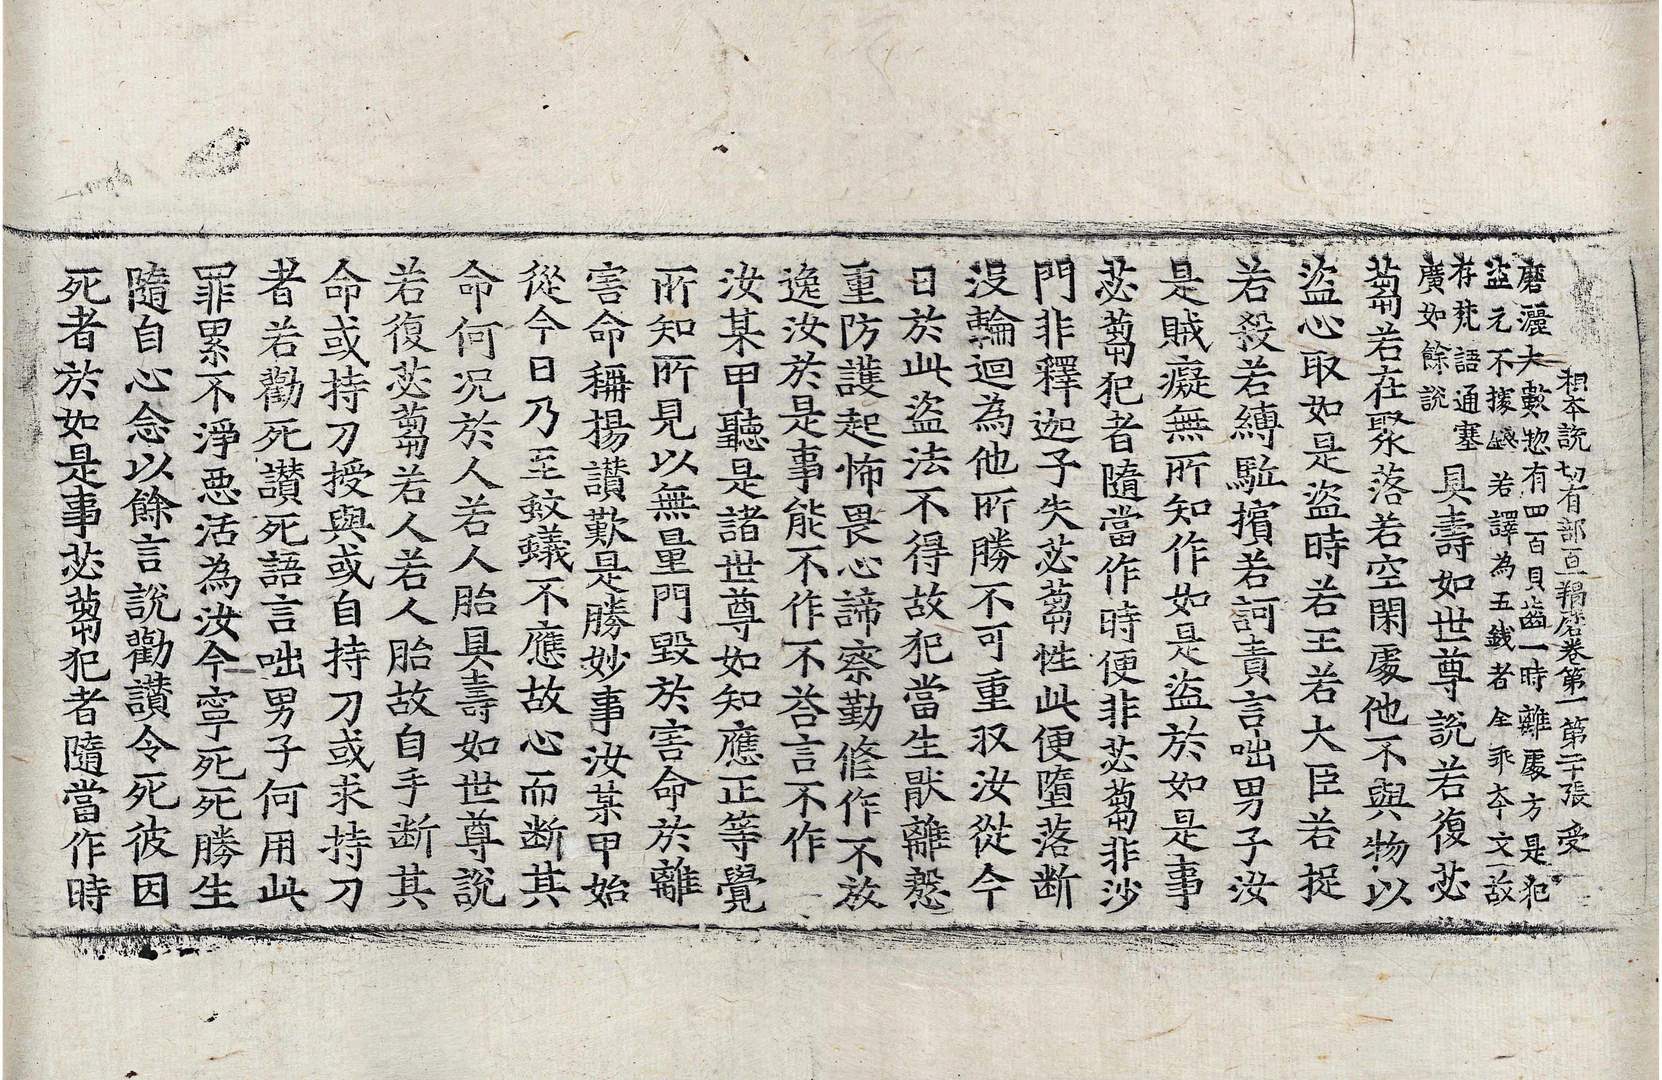 根本說一切有部百一羯磨卷第一 第二十張 受
磨灑夫數惣有四百貝齒一時離處方是犯
盜元不據錢若譯為五錢者全乖本文故
存梵語通塞
廣如餘說
具壽如世尊說若復苾
蒭若在聚落若空閑處他不與物以
盜心取如是盜時若王若大臣若捉
若殺若縛駈擯若訶責言咄男子汝
是賊癡無所知作如是盜於如是事
苾蒭犯者隨當作時便非苾蒭非沙
門非釋迦子失苾蒭性此便墮落斷
沒輪迴為他所勝不可重收汝從今
日於此盜法不得故犯當生猒離慇
重防護起怖畏心諦察勤修作不放
逸汝於是事能不作不荅言不作
汝某甲聽是諸世尊如知應正等覺
所知所見以無量門毀於害命於離
害命稱揚讃歎是勝妙事汝某甲始
從今日乃至蚊蟻不應故心而斷其
命何況於人若人胎具壽如世尊說
若復苾蒭若人若人胎故自手斷其
命或持刀授與或自持刀或求持刀
者若勸死讃死語言咄男子何用此
罪累不淨惡活為汝今寧死死勝生
隨自心念以餘言說勸讃令死彼因
死者於如是事苾蒭犯者隨當作時